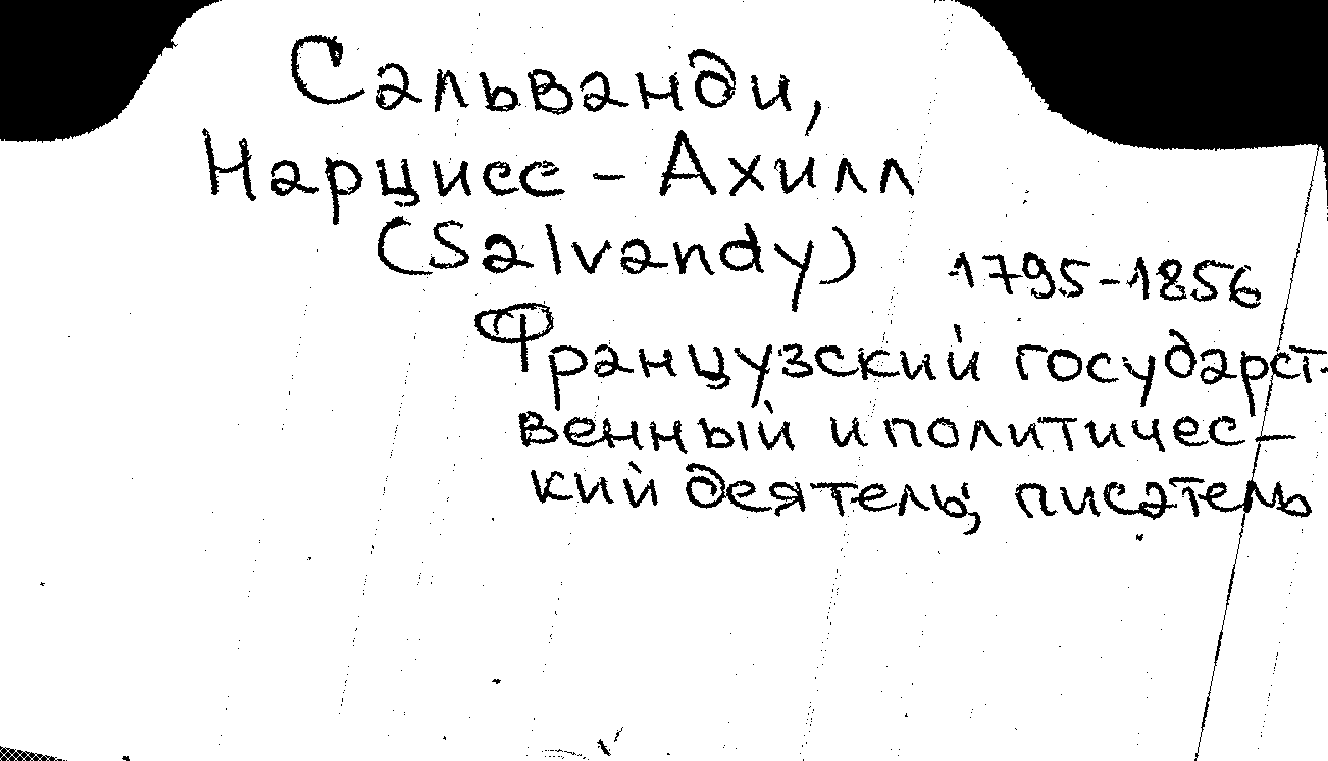 Сальванди,
Нарцисс - Ахилл
(Salvandy) 1795-1856
Французский государст-
венный и политичес-
кий деятель; писатель